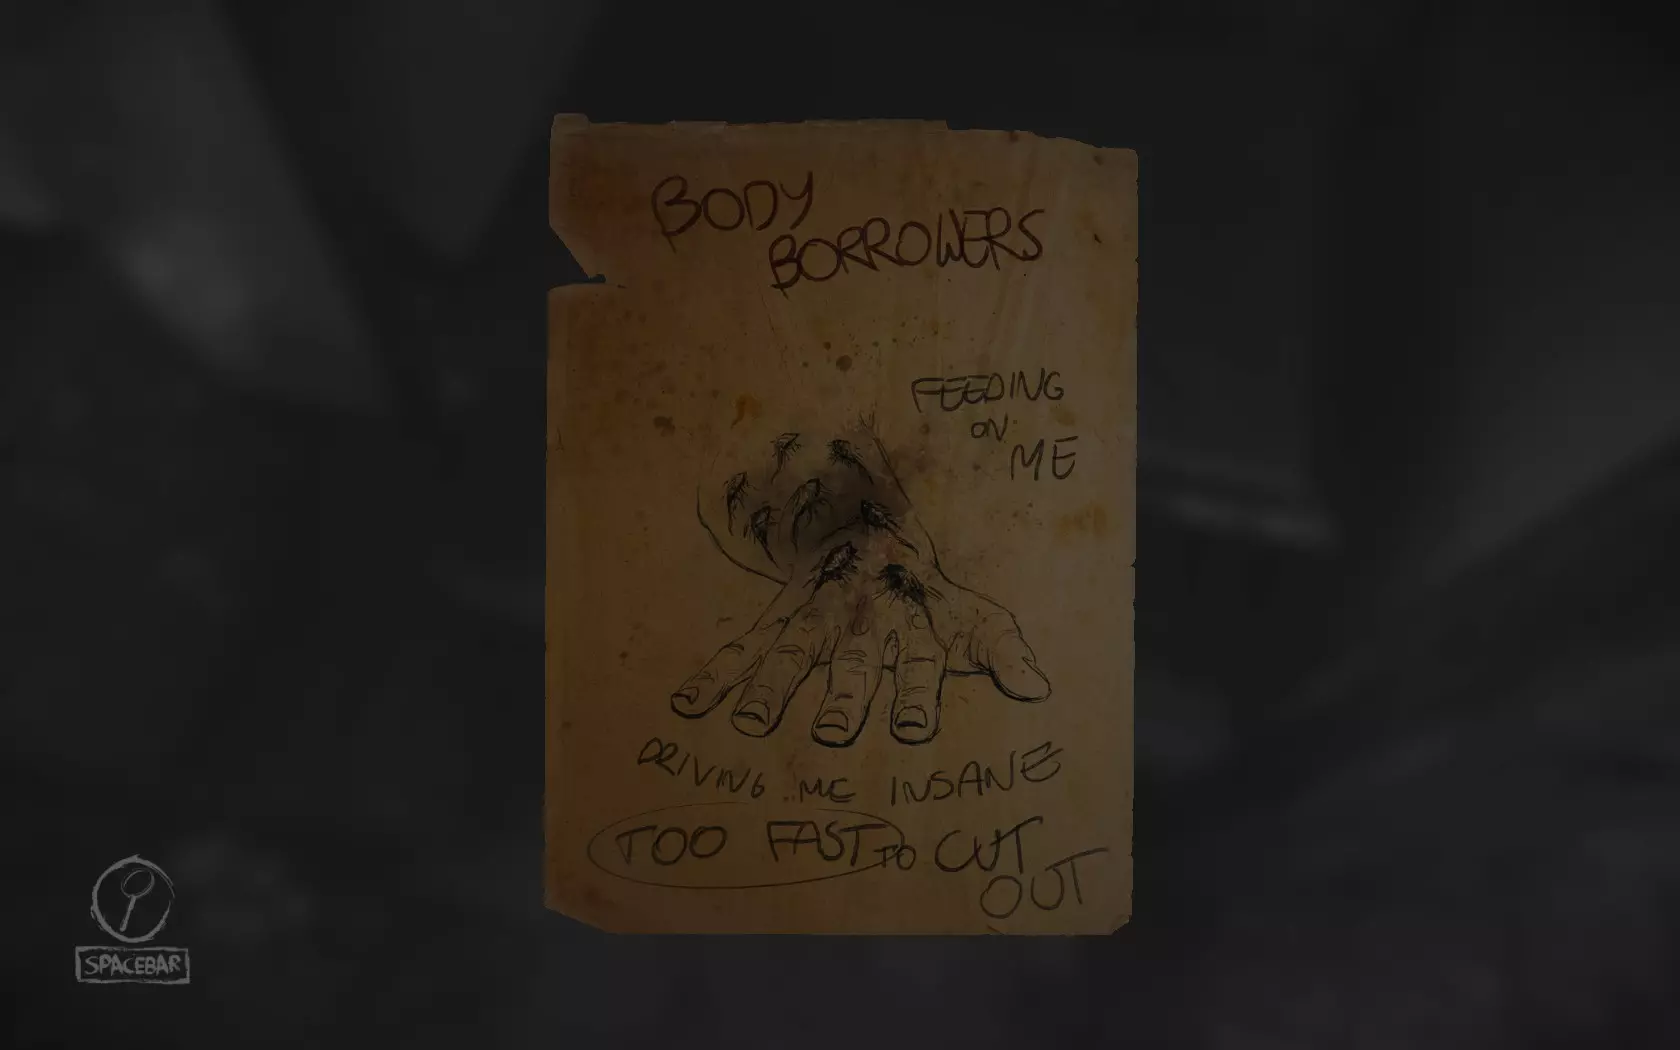 BODY
BORROWERS
FEEDING
ON
ME
DRIVING ME INSANE
TOO FAST TO CUT
OUT
SPACEBAR